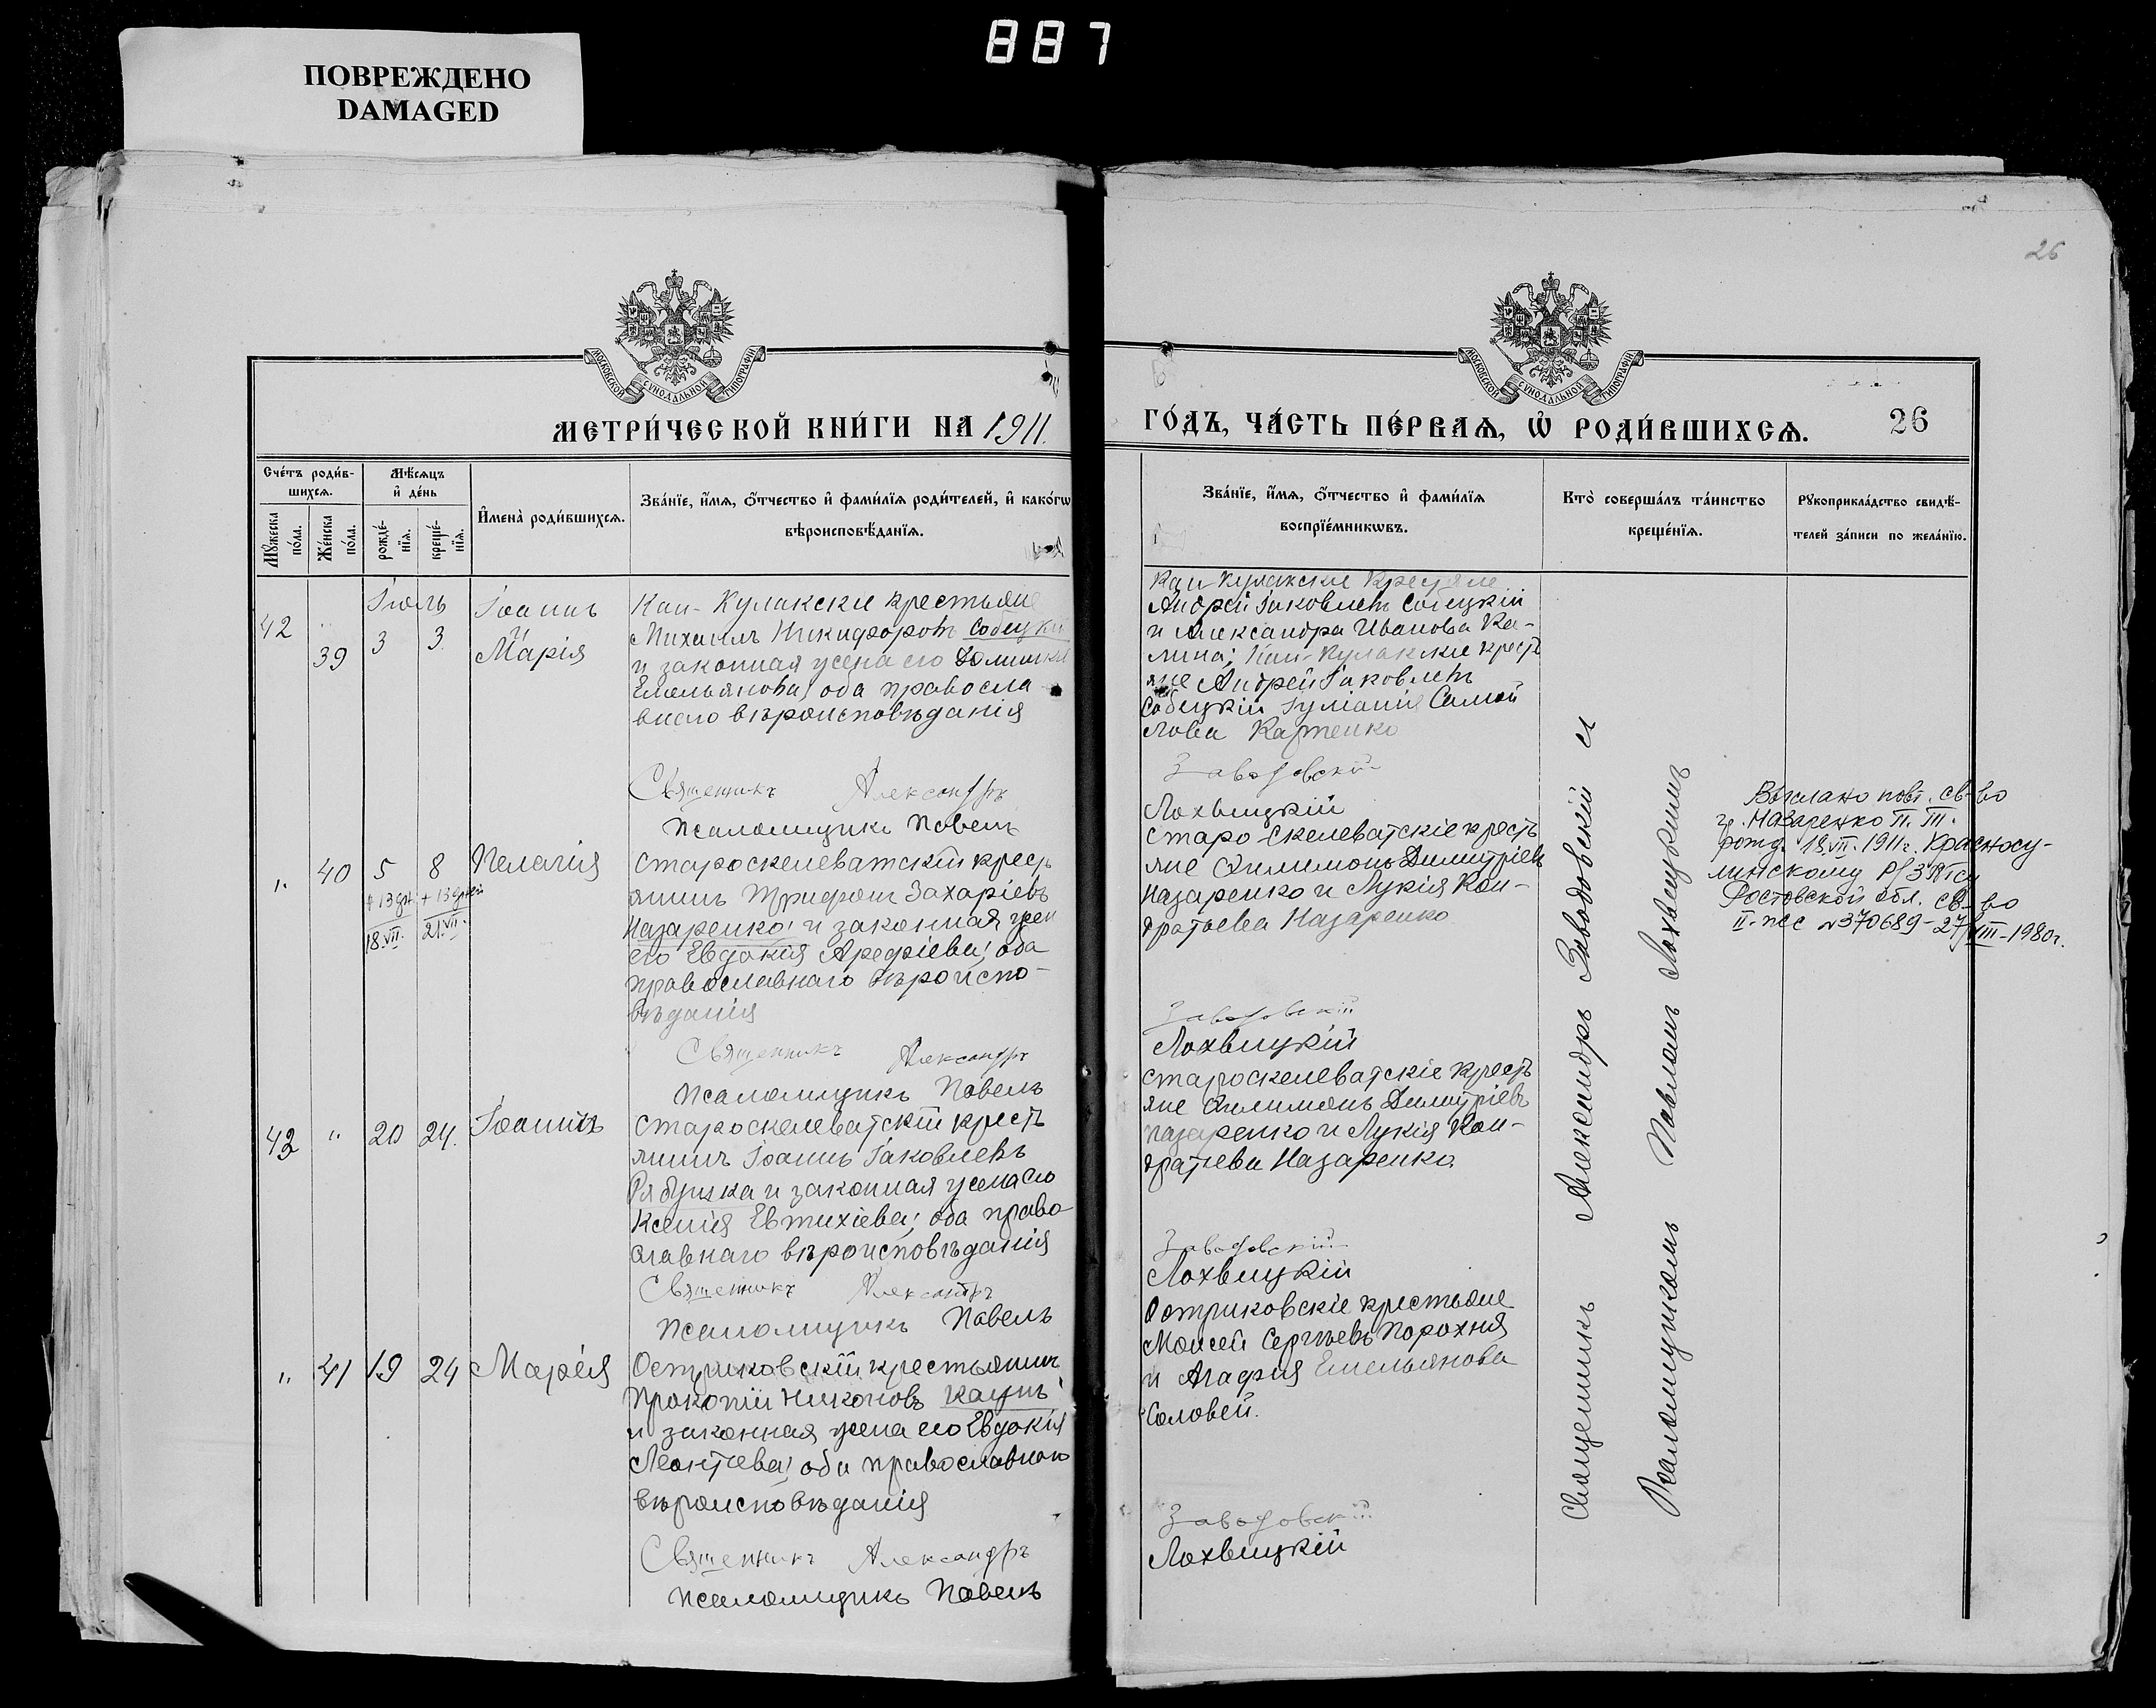 887
ПОВРЕЖДЕНО
DAMAGED
26
МОСКОВСКОЙ СѴНОДАЛЬНОЙ ТИПОГРАФІИ
МОСКОВСКОЙ СѴНОДАЛЬНОЙ ТИПОГРАФІИ
МЕТРИ́ЧЕСКОЙ КНИ́ГИ НА 1911.
ГО́ДЪ, ЧА́СТЬ ПЕ́РВАѦ, Ѡ҆ РОДИ́ВШИХСѦ. 26
Сче́тъ роди́в-
шихсѧ.
Мѣ́сѧцъ
и҆ де́нь
Мꙋ́жеска
по́ла.
Же́нска
по́ла.
рожде́-
нїѧ.
креще́-
нїѧ.
И҆мена̀ роди́вшихсѧ.
Зва́нїе, и҆́мѧ, ѻ҆́тчество и҆ фами́лїѧ роди́телей, и҆ како́гѡ
вѣроисповѣ́данїѧ.
Зва́нїе, и҆́мѧ, ѻ҆́тчество и҆ фами́лїѧ
воспрїе́мникѡвъ.
Кто̀ соверша́лъ та́инство
креще́нїѧ.
Рꙋкоприкла́дство свидѣ́-
телей за́писи по жела́нїю.
Іюль
42 " 39 3 3
Іоаннъ
и
Марія
Кап-Кулакскіе крестьяне
Михаилъ Никифоровъ Собецкій
и законная жена его
Емельянова; оба правосла
внаго вѣроисповѣданія
Священникъ Александръ
Псаломщикъ Павелъ
Кап-Кулакскіе крестьяне
Андрей Іаковлевъ Собецкій
и Александра Иванова Ка-
лина; Кап-Кулакскіе кресть
яне Андрей Іаковлевъ
Собецкій Іуліанія Самой
лова Карпенко
Заводовскій
Лохвицкій
" 40 5 8 Пелагія
+ 13 дн. + 13 дней
18.VII. 21.VII.
Староскелеватскій кресть
янинъ Трифонъ Захаріевъ
Назаренко; и законная жен
его Евдокія Арефіева; оба
православнаго вѣроиспо-
вѣданія
Священникъ Александръ
Псаломщикъ Павелъ
Старо-Скелеватскіе кресть
яне Филимонъ Димитріевъ
Назаренко и Лукія Кон-
дратьева Назаренко
Заводовскій
Лохвицкій
Выслано повт. св-во
гр. Назаренко П. Т.
рожд. 18.VII. 1911 г. Красносу-
линскому Р/ЗАГСу
Ростовской обл. св-во
№370689 - 27/VIII-1980г.
43 " 20 24. Іоаннъ
Староскелеватскій кресть
янинъ Іоаннъ Іаковлевъ
Рябушка и законная жена его
Ксенія Евтихіева; оба право
славнаго вѣроисповѣданія
Священникъ Александръ
Псаломщикъ Павелъ
Староскелеватскіе кресть
яне Филимонъ Димитріевъ
Назаренко и Лукія Кон-
дратіева Назаренко.
Заводовскій
Лохвицкій
" 41 19 24 Марія
Остриковскій крестьянинъ
Прокопій Никоновъ Каунъ
и законная жена его Евдокія
Леонтіева; оба православнаго
вѣроисповѣданія
Священникъ Александръ
Псаломщикъ Павелъ
Остриковскіе крестьяне
Моисей Сергѣевъ Порохня
и Агафія Емельянова
Соловей.
Заводовскій
Лохвицкій
Священникъ Александръ Заводовскій и
Псаломщикомъ Павломъ Лохвицкимъ